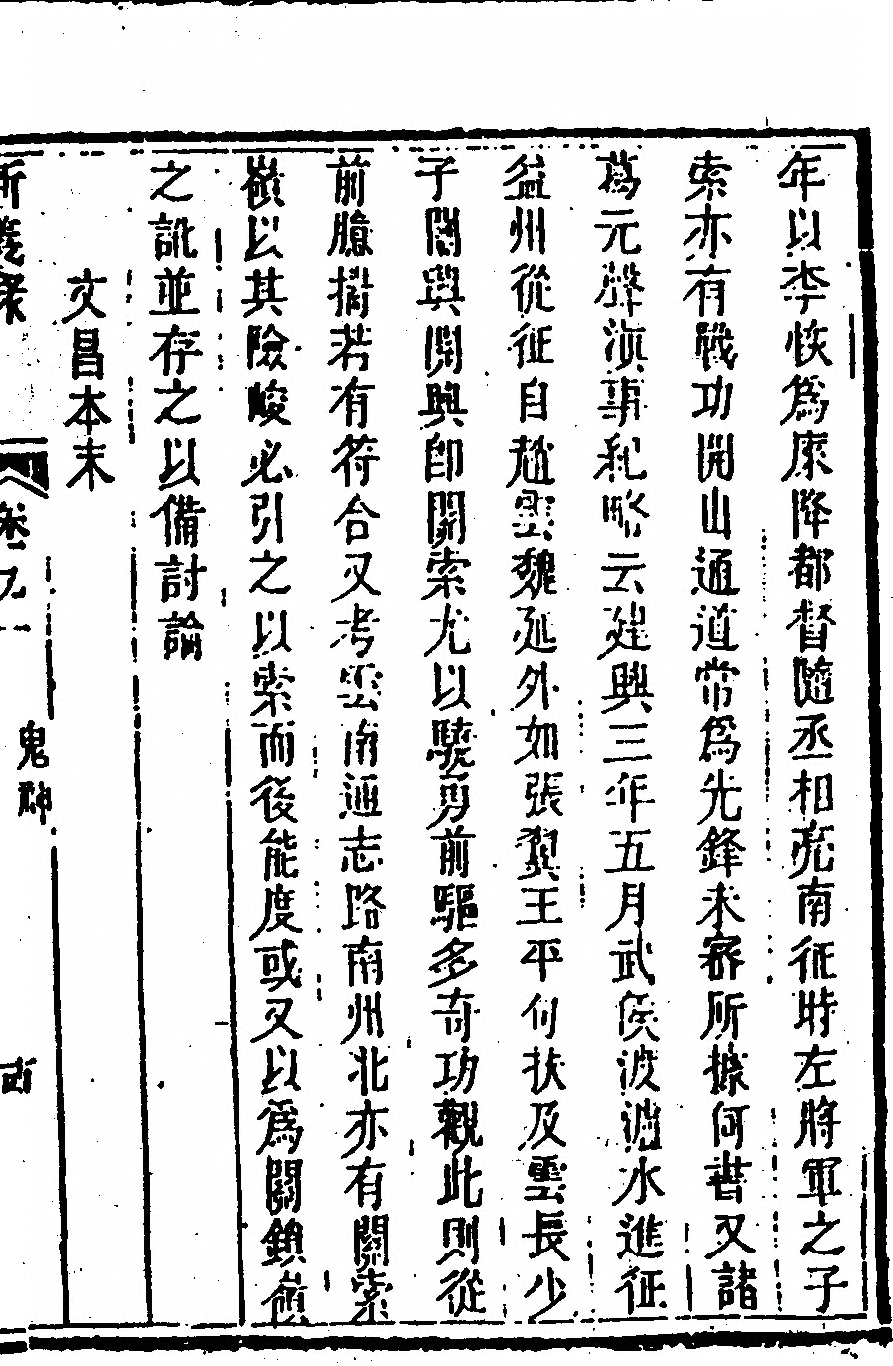 年以李恢爲庲降都督隨丞相亮南征時左將軍之子
索亦有戰功開山通道常爲先鋒未審所據何書又諸
葛元聲滇事紀略云建興三年五月武侯渡瀘水進征
益州從征自趙雲魏延外如張翼王平句扶及雲長少
子關興關興卽關索尤以驍勇前驅多奇功觀此則從
前臆揣若有符合又考雲南通志路南州北亦有關索
嶺以其險峻必引之以索而後能度或又以爲關鎖嶺
之訛並存之以備討論
文昌本末
卷九 鬼神